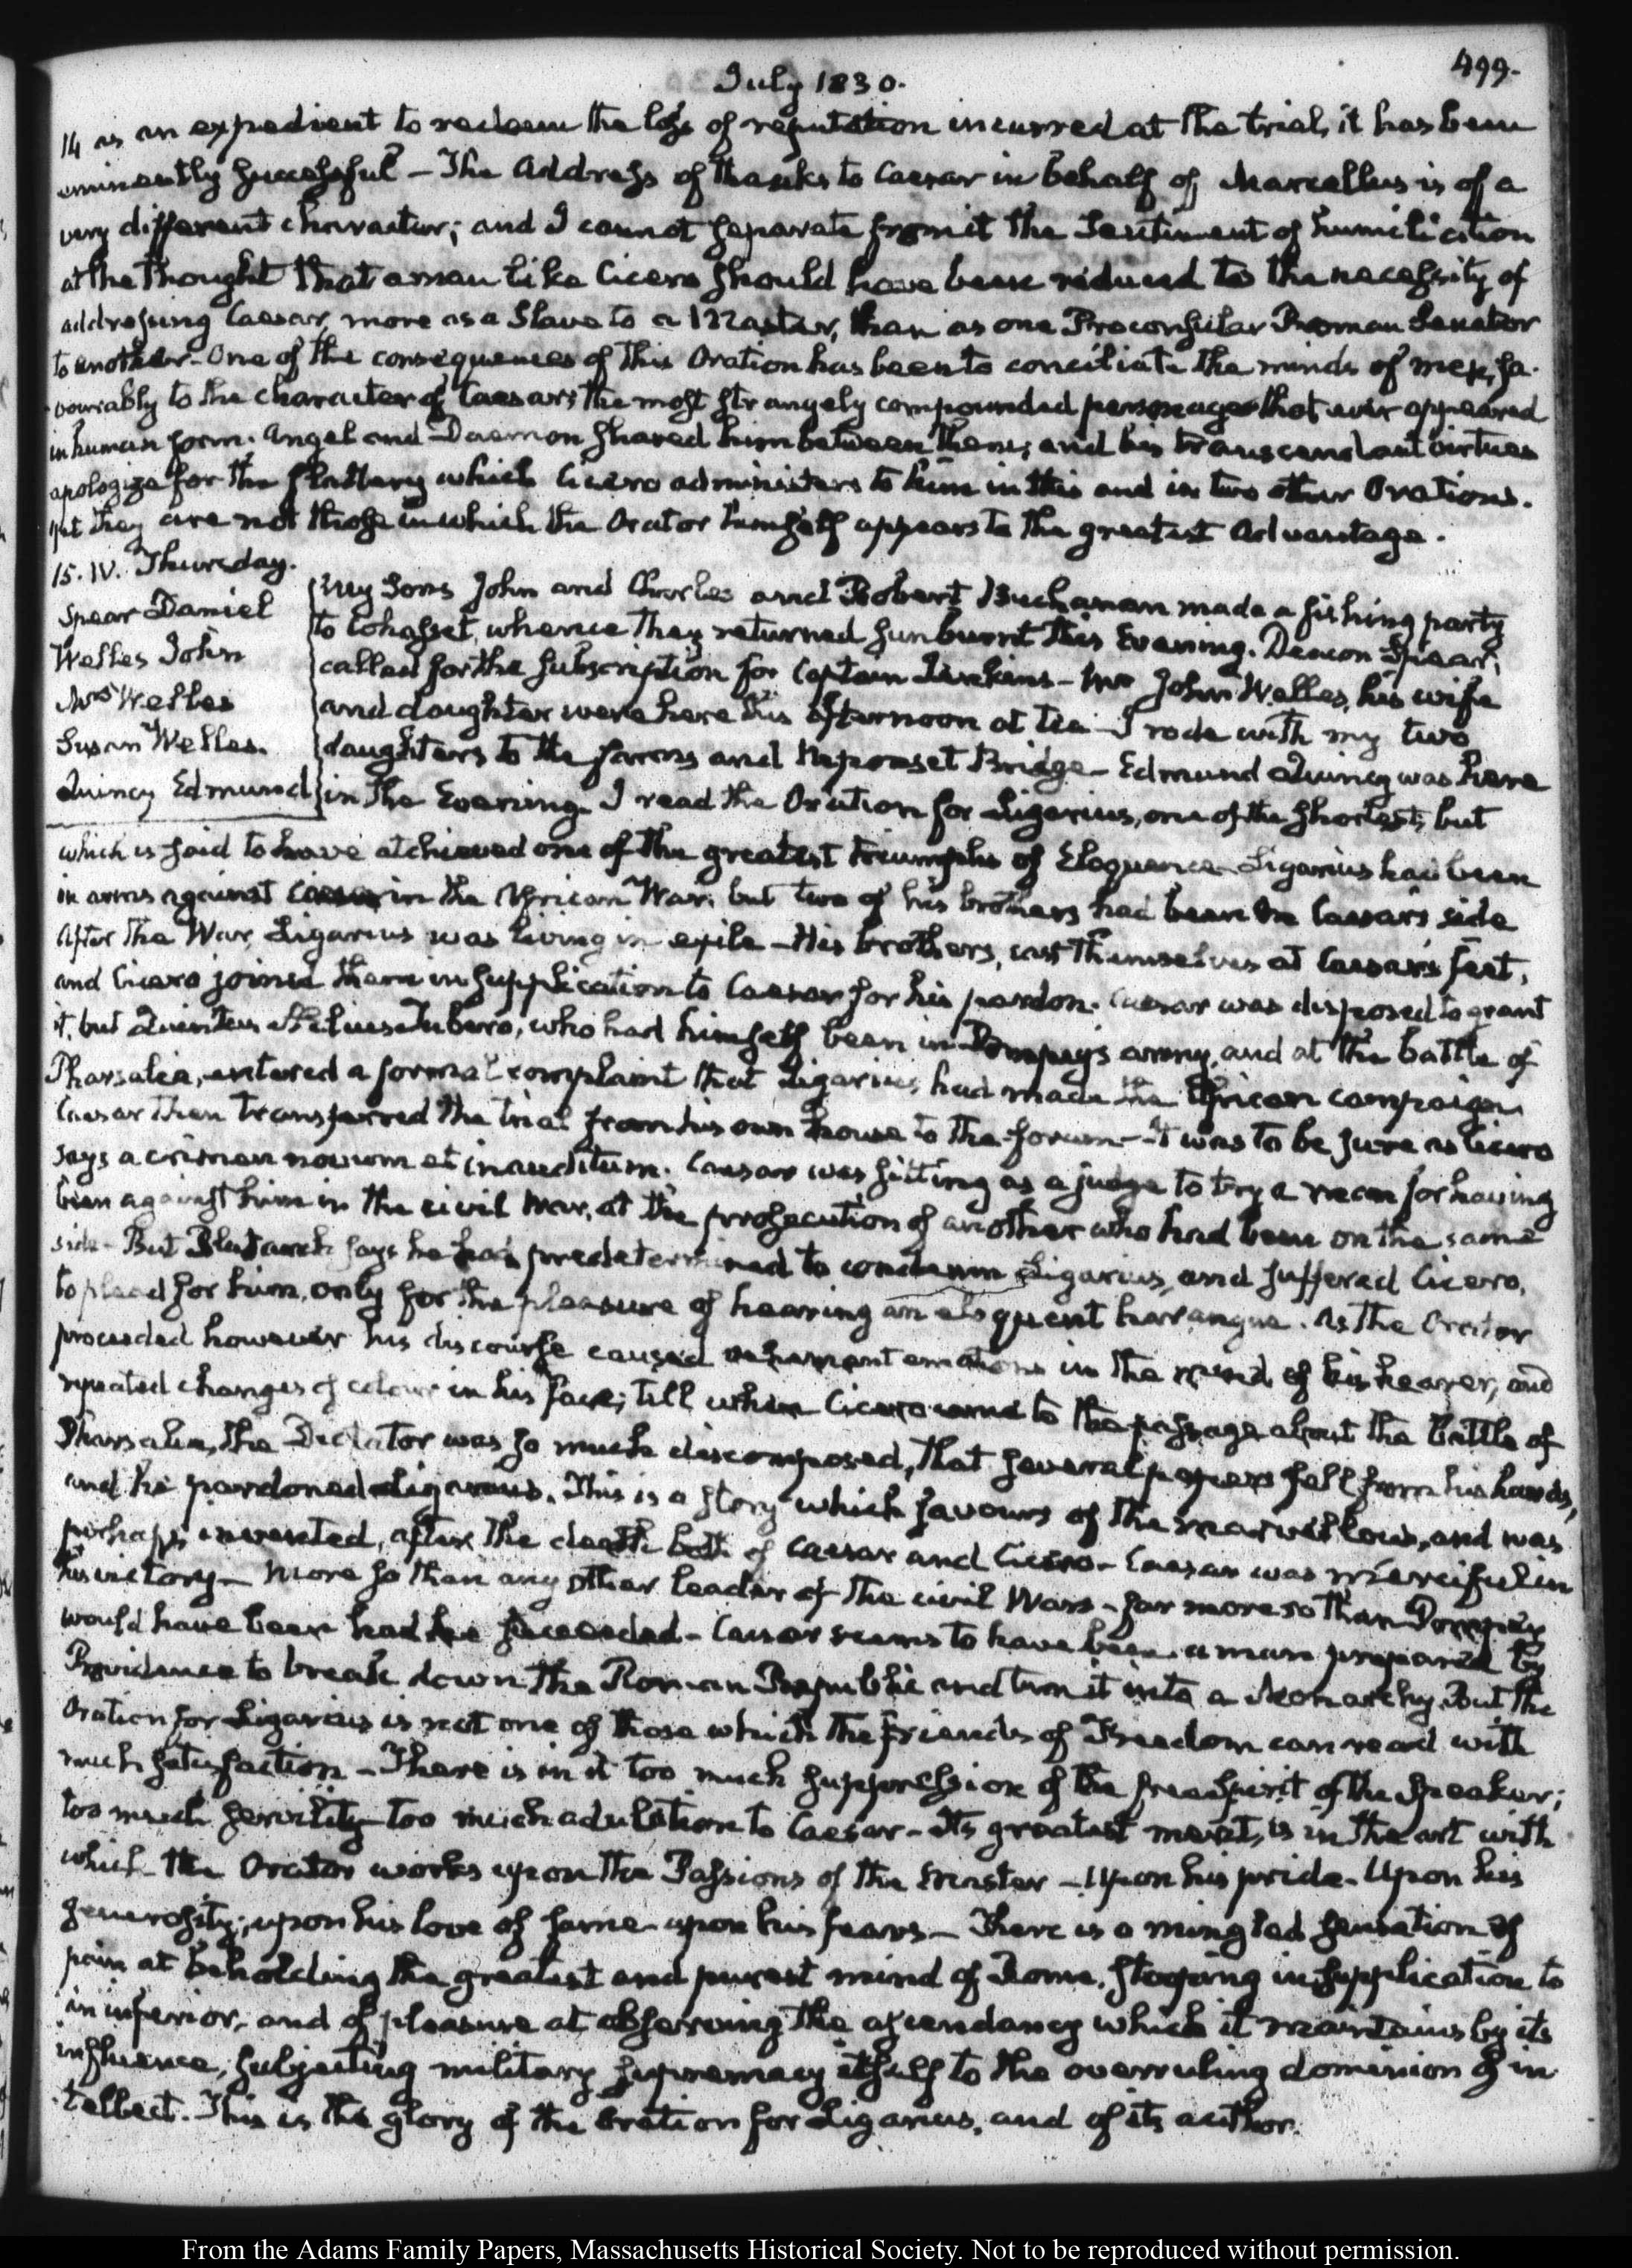 499.
July 1830.
14 as an expedient to redeem the loss of reputation incurred at the trial, it has been
eminently successful – The Address of thanks to Caesar in behalf of Marcellus is of a
very different character; and I cannot separate from it the Sentiment of humiliation
at the thought that a man like Cicero should have been reduced to the necessity of
addressing Caesar, more as a Slave to a Master, than as one Proconsular Roman Senator
to another – One of the consequences of this Oration has been to conciliate the minds of men, fa-
vourably to the character of Caesar; the most strangely compounded personage that ever appeared
in human form. Angel and Daemon shared him between them; and his transcendant virtues
apologize for the flattery which Cicero administers to him in this and in two other Orations.
yet they are not those in which the Orator himself appears to the greatest Advantage.
15. IV. Thursday.
Spear Daniel
Welles John
Mrs Welles
Susan Welles.
Quincy Edmund
My Sons John and Charles and Robert Buchanan made a fishing party
to Cohasset, whence they returned sunburnt this Evening. Deacon Spear,
called for the subscription for Captain – Mr John Welles, his wife
and daughter were here this afternoon at tea – I rode with my two
daughters to the farms and Neponset Bridge – Edmund Quincy was here
in the Evening. I read the Oration for Ligarius, one of the shortest, but
which is said to have atchieved one of the greatest triumphs of Eloquence – Ligarius had been
in arms against Caesar in the African War; but two of his brothers had been on Caesar's side
After the War, Ligarius was living in exile – His brothers, cast themselves at Caesar's feet,
and Cicero joined them in supplication to Caesar for his pardon. Caesar was disposed to grant
it, but Quintus Aelius Tubero, who had himself been in Pompey's army, and at the battle of
Pharsalia, entered a formal complaint that Ligarius, had made the African campaign
Caesar then transferred the trial from his own house to the forum – It was to be sure as Cicero
says a crimen novum et inauditum. Caesar was sitting as a judge to try a man for having
been against him in the civil War, at the prosecution of another who had been on the same
side – But Plutarch says he had predetermined to condemn Ligarius, and suffered Cicero,
to plead for him, only for the pleasure of hearing an eloquent harangue. As the Orator
proceeded however his discourse caused vehement emotions in the mind of his hearer, and
repeated changes of colour in his face; till when Cicero came to the passage about the battle of
Pharsalia, the Dictator was so much discomposed, that several papers fell from his hands,
and he pardoned Ligarius. This is a story which savours of the marvellous, and was
perhaps invented, after the death both of Caesar and Cicero – Caesar was merciful in
his victory – more so than any other leader of the civil Wars – far more so than Pompey
would have been had he succeeded – Caesar seems to have been a man prepared by
Providence to break down the Roman Republic and turn it into a Monarchy. But the
Oration for Ligarius is not one of those which the friends of Freedom can read with
much satisfaction – There is in it too much suppression of the free spirit of the Speaker;
too much servility – too much adulation to Caesar – Its greatest merit, is in the art with
which the Orator works upon the Passions of the Master – Upon his pride – Upon his
generosity; upon his love of fame – upon his fears – There is a mingled sensation of
pain at beholding the greatest and purest mind of Rome, stooping in supplication to
an inferior, and of pleasure at observing the ascendancy which it maintains by its
influence, subjecting military supremacy itself to the overruling dominion of in-
tellect. This is the glory of the Oration for Ligarius, and of its author.
From the Adams Family Papers, Massachusetts Historical Society. Not to be reproduced without permission.